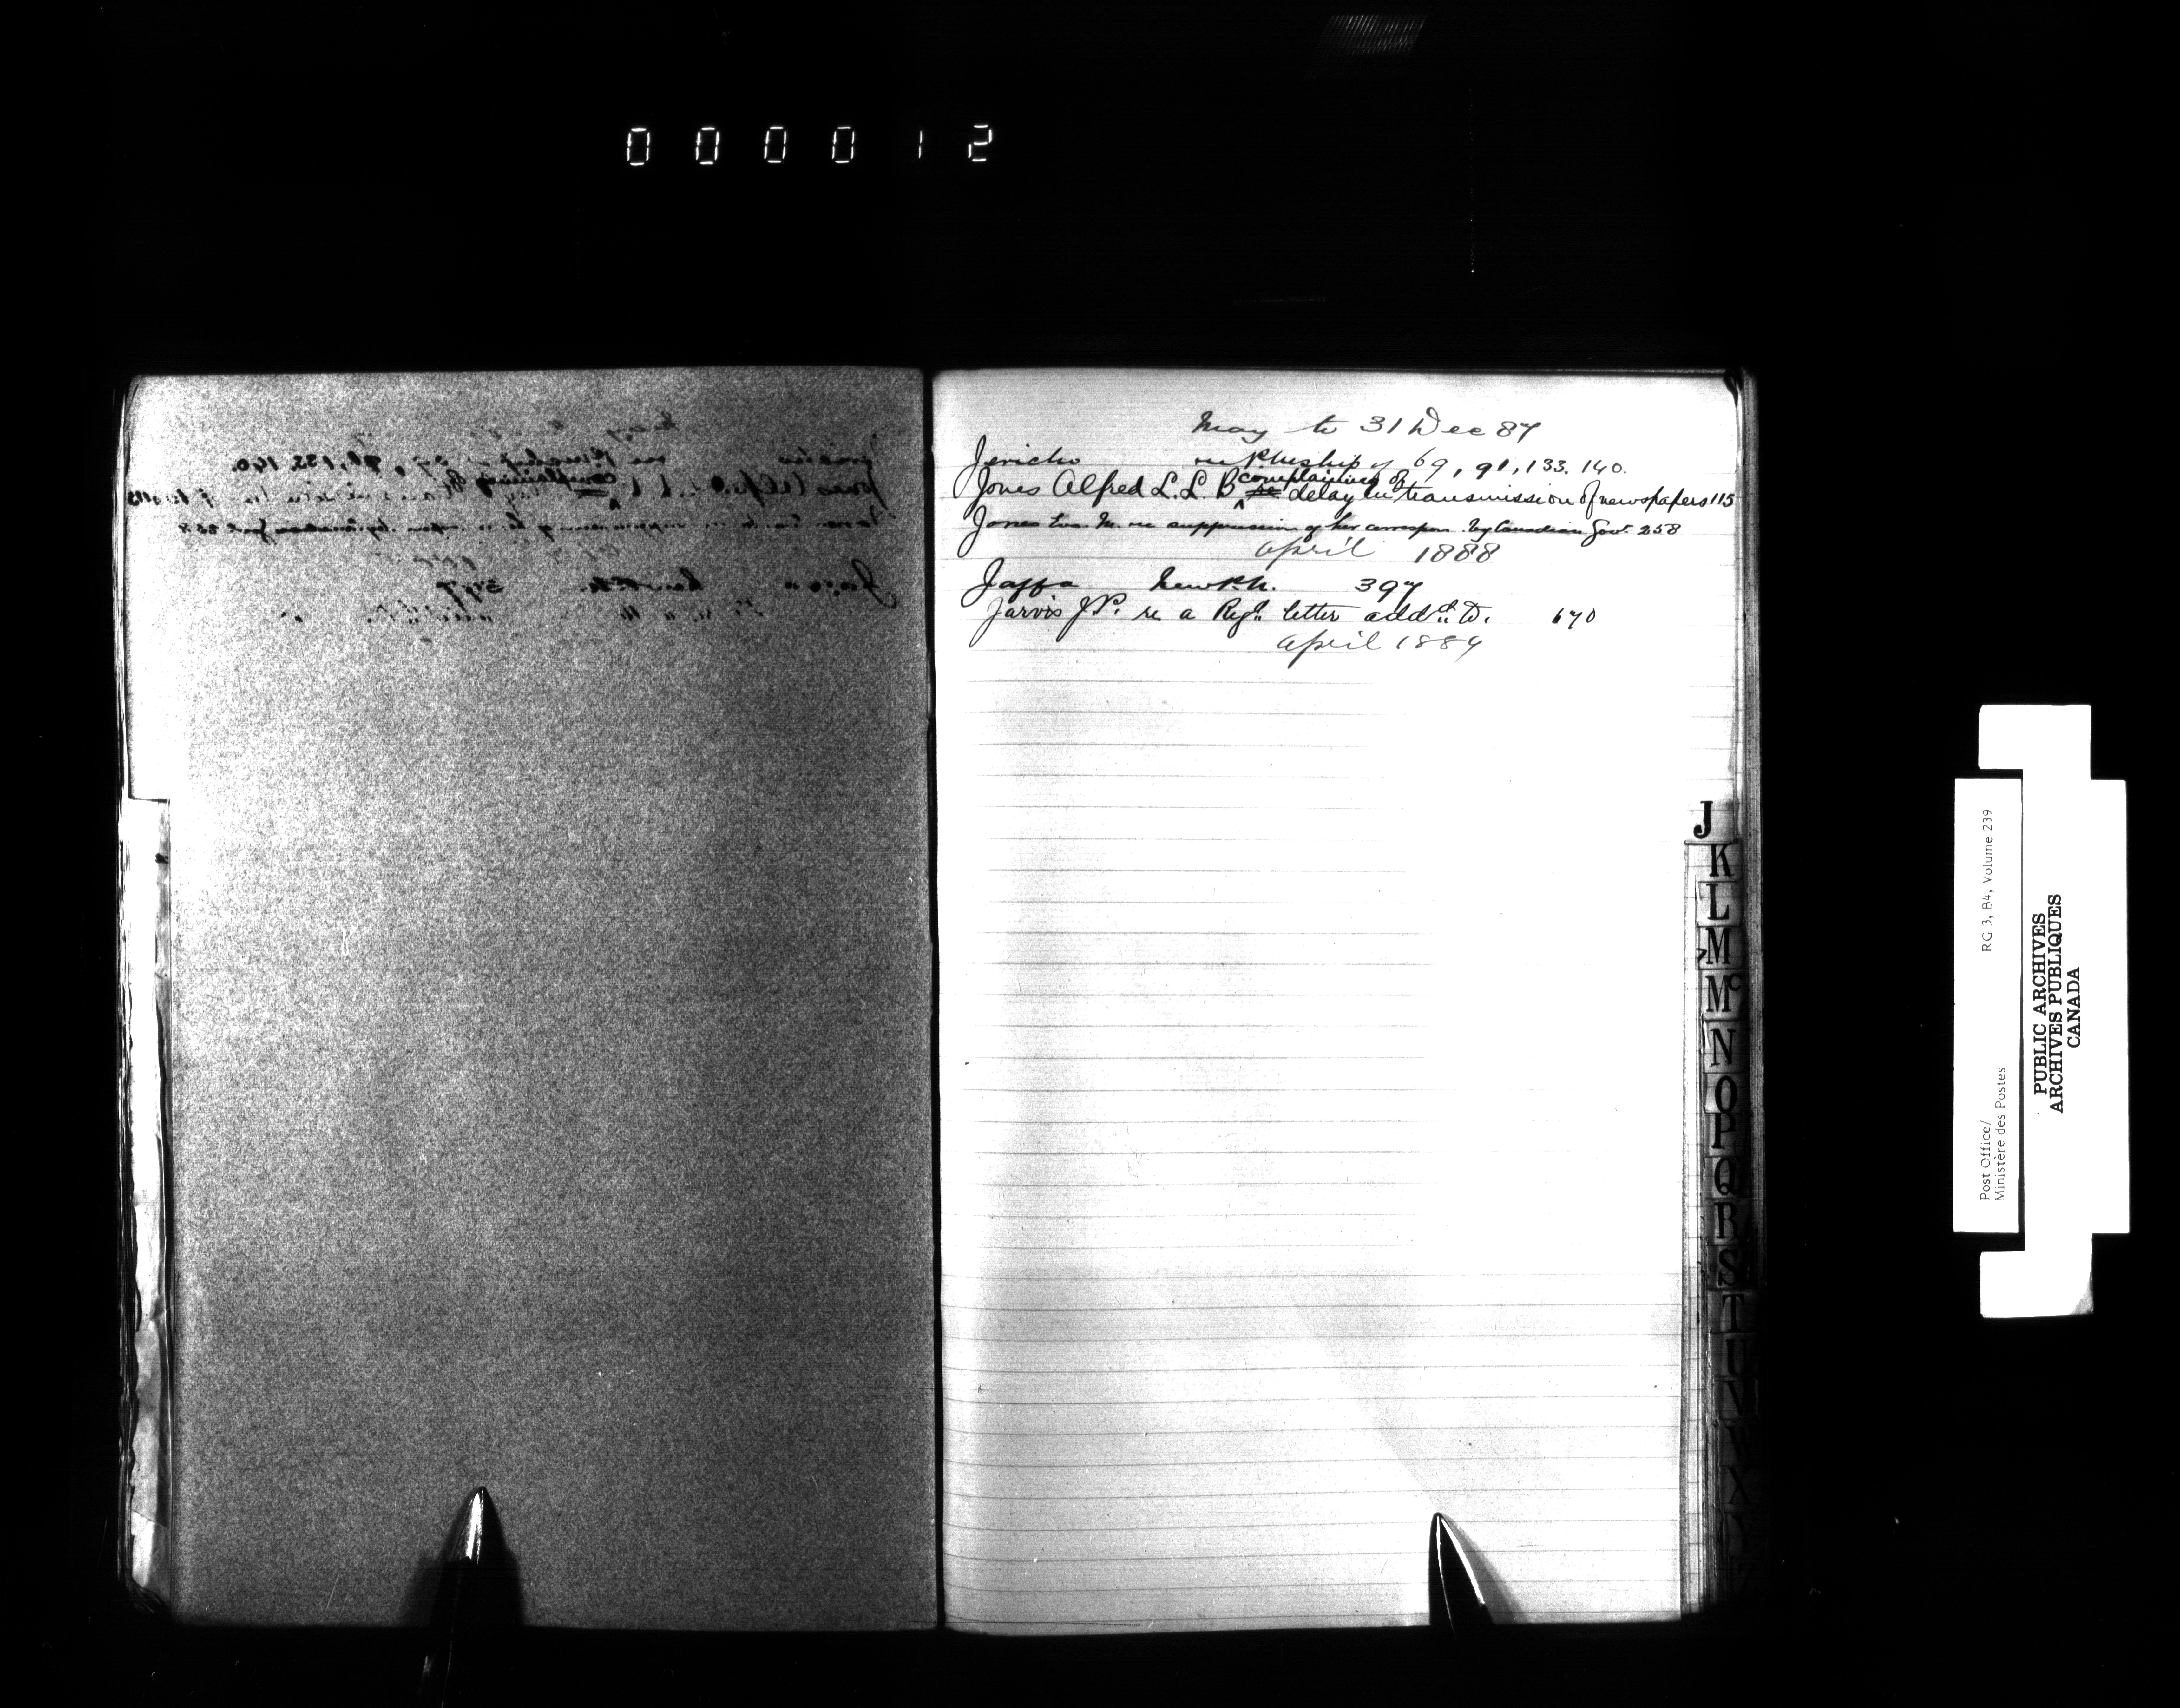 000012
May to 31 Dec 87
Jericho re P.M.ship of 69, 91, 133. 140.
complaining of
Jones Alfred L. L. B ^ re delay in transmission of newspapers 115
Jones Eva. M. re suppression of her correspon. by Canadian Govt. 258
April 1888
Jaffa New P.O. 397
Jarvis J.P. re a Regd. letter addd. to. 670
April 1889
J
K
L
M
Mc
N
O
P
Q
R
S
T
U
V
W
X
Y
Z
Post Office/
Ministère des Postes
RG 3, B4, Volume 239
PUBLIC ARCHIVES
ARCHIVES PUBLIQUES
CANADA